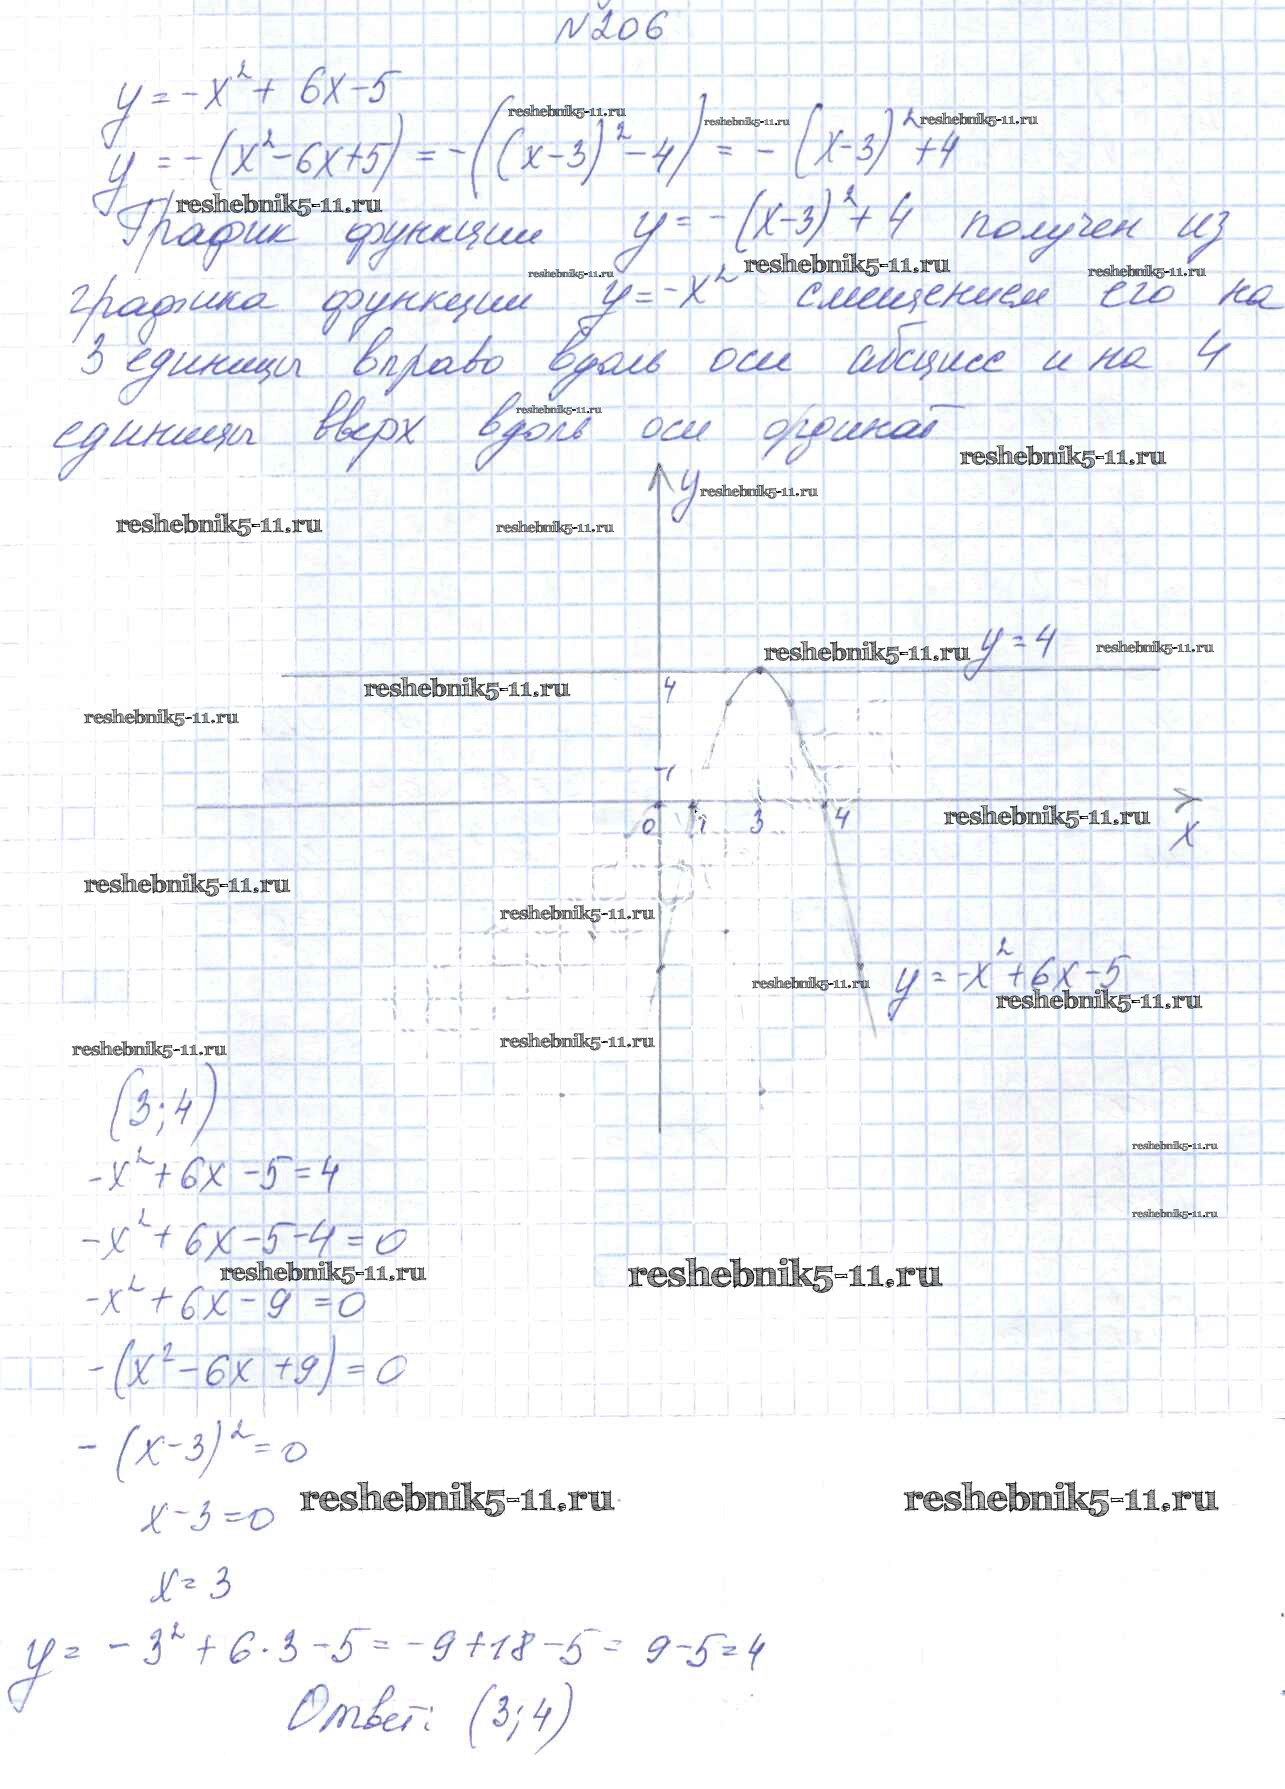 N206
y = -x² + 6x - 5
reshebnik5-11.ru reshebnik5-11.ru reshebnik5-11.ru
y = -(x² - 6x + 5) = -((x-3)² - 4) = -(x-3)² + 4
reshebnik5-11.ru
График функции y = -(x-3)² + 4 получен из
reshebnik5-11.ru reshebnik5-11.ru reshebnik5-11.ru
графика функции y = -x² смещением его на
3 единицы вправо вдоль оси абсцисс и на 4
reshebnik5-11.ru
единицы вверх вдоль оси ординат
reshebnik5-11.ru
y reshebnik5-11.ru
reshebnik5-11.ru reshebnik5-11.ru
reshebnik5-11.ru y = 4 reshebnik5-11.ru
reshebnik5-11.ru 4
reshebnik5-11.ru
1
0 1 3 4 reshebnik5-11.ru
x
reshebnik5-11.ru
reshebnik5-11.ru
reshebnik5-11.ru y = -x² + 6x - 5
reshebnik5-11.ru
reshebnik5-11.ru reshebnik5-11.ru
(3; 4)
reshebnik5-11.ru
-x² + 6x - 5 = 4
reshebnik5-11.ru
-x² + 6x - 5 - 4 = 0
reshebnik5-11.ru reshebnik5-11.ru
-x² + 6x - 9 = 0
-(x² - 6x + 9) = 0
-(x-3)² = 0
reshebnik5-11.ru reshebnik5-11.ru
x - 3 = 0
x = 3
y = -3² + 6·3 - 5 = -9 + 18 - 5 = 9 - 5 = 4
Ответ: (3; 4)